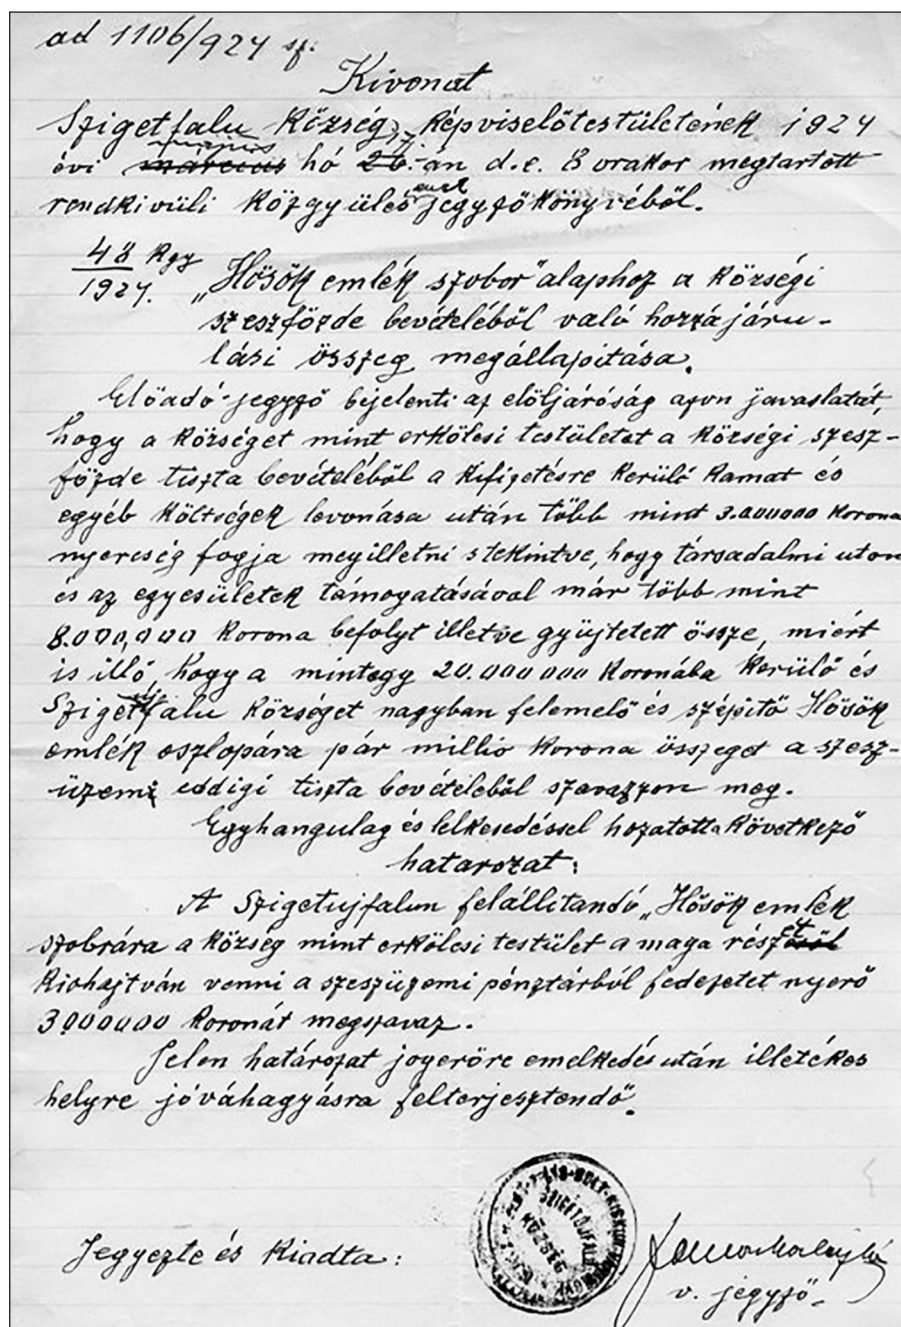 ad 1106/924 sz:
Kivonat
Szigetfalu Község, Képviselőtestületének 1924
évi március hó 26.-án d.e. 8 orakor megtartott
rendkivüli Közgyülés jegyzőkönyvéből.
48 Kgy
1924.
„Hősök emlék szobor" alaphoz a községi
szeszfőzde bevételéből való hozzájáru-
lási összeg megállapitása.
Előadó-jegyző bejelenti az elöljáróság azon javaslatát,
hogy a községet mint erkölcsi testületet a Községi szesz-
főzde tiszta bevételéből a kifizetésre kerülő kamat és
egyéb költségek levonása után több mint 3.000000 korona
nyereség fogja megilletni s tekintve, hogy társadalmi uton
és az egyesületek támogatásával már több mint
8.000,000 korona befolyt illetve gyüjtetett össze, miért
is illő, hogy a mintegy 20.000000 koronába kerülő és
Szigetújfalu községet nagyban felemelő és szépitő Hősök
emlék oszlopára pár millió korona összeget a szesz-
üzemi eddigi tiszta bevételéből szavazzon meg.
Egyhangulag és lelkesedéssel hozatott a következő
határozat:
A Szigetujfalun felállitandó „Hősök emlék
szobrára a község mint erkölcsi testület a maga részét
kiohajtván venni a szeszüzemi pénztárból fedezetet nyerő
3000000 koronát megszavaz.
Jelen határozat jogerőre emelkedés után illetékes
helyre jóváhagyásra felterjesztendő.
SZIGETÚJFALU
KÖZSÉG
Jegyezte és Kiadta:
v. jegyző.